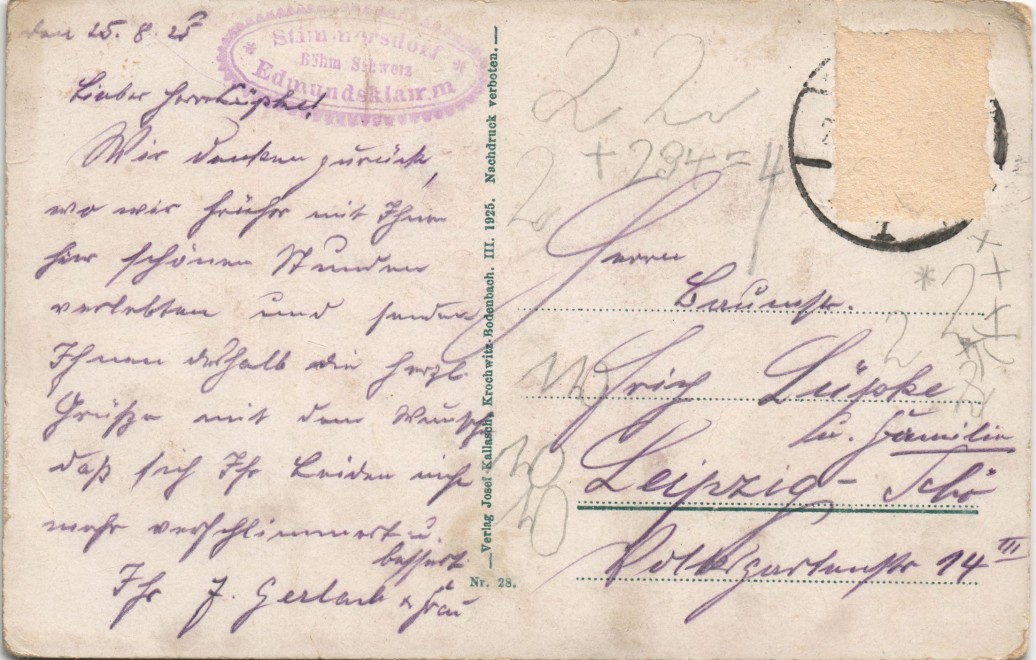 den 25. 8. 25
Stimmersdorf
Böhm Schweiz
Edmundsklamm
Lieber Herr Lüpke!
Wir denken zurück,
wo wir früher mit Ihnen
hier schönen Stunden
verlebten und senden
Ihnen deshalb die herzl.
Grüße mit dem Wunsche
daß sich Ihr Leiden nicht
mehr verschlimmert u.
bessert
Ihr J. Gerlach & Frau
—Verlag Josef Kallasch Krochwitz-Bodenbach. III. 1925. Nachdruck verboten.—
Nr. 28.
2 2
+ 234 = 4
2
1
Herrn
Baumstr.
Erich Lüpke
u. Familie
Leipzig- Schö
Volksgartenstr 14 III